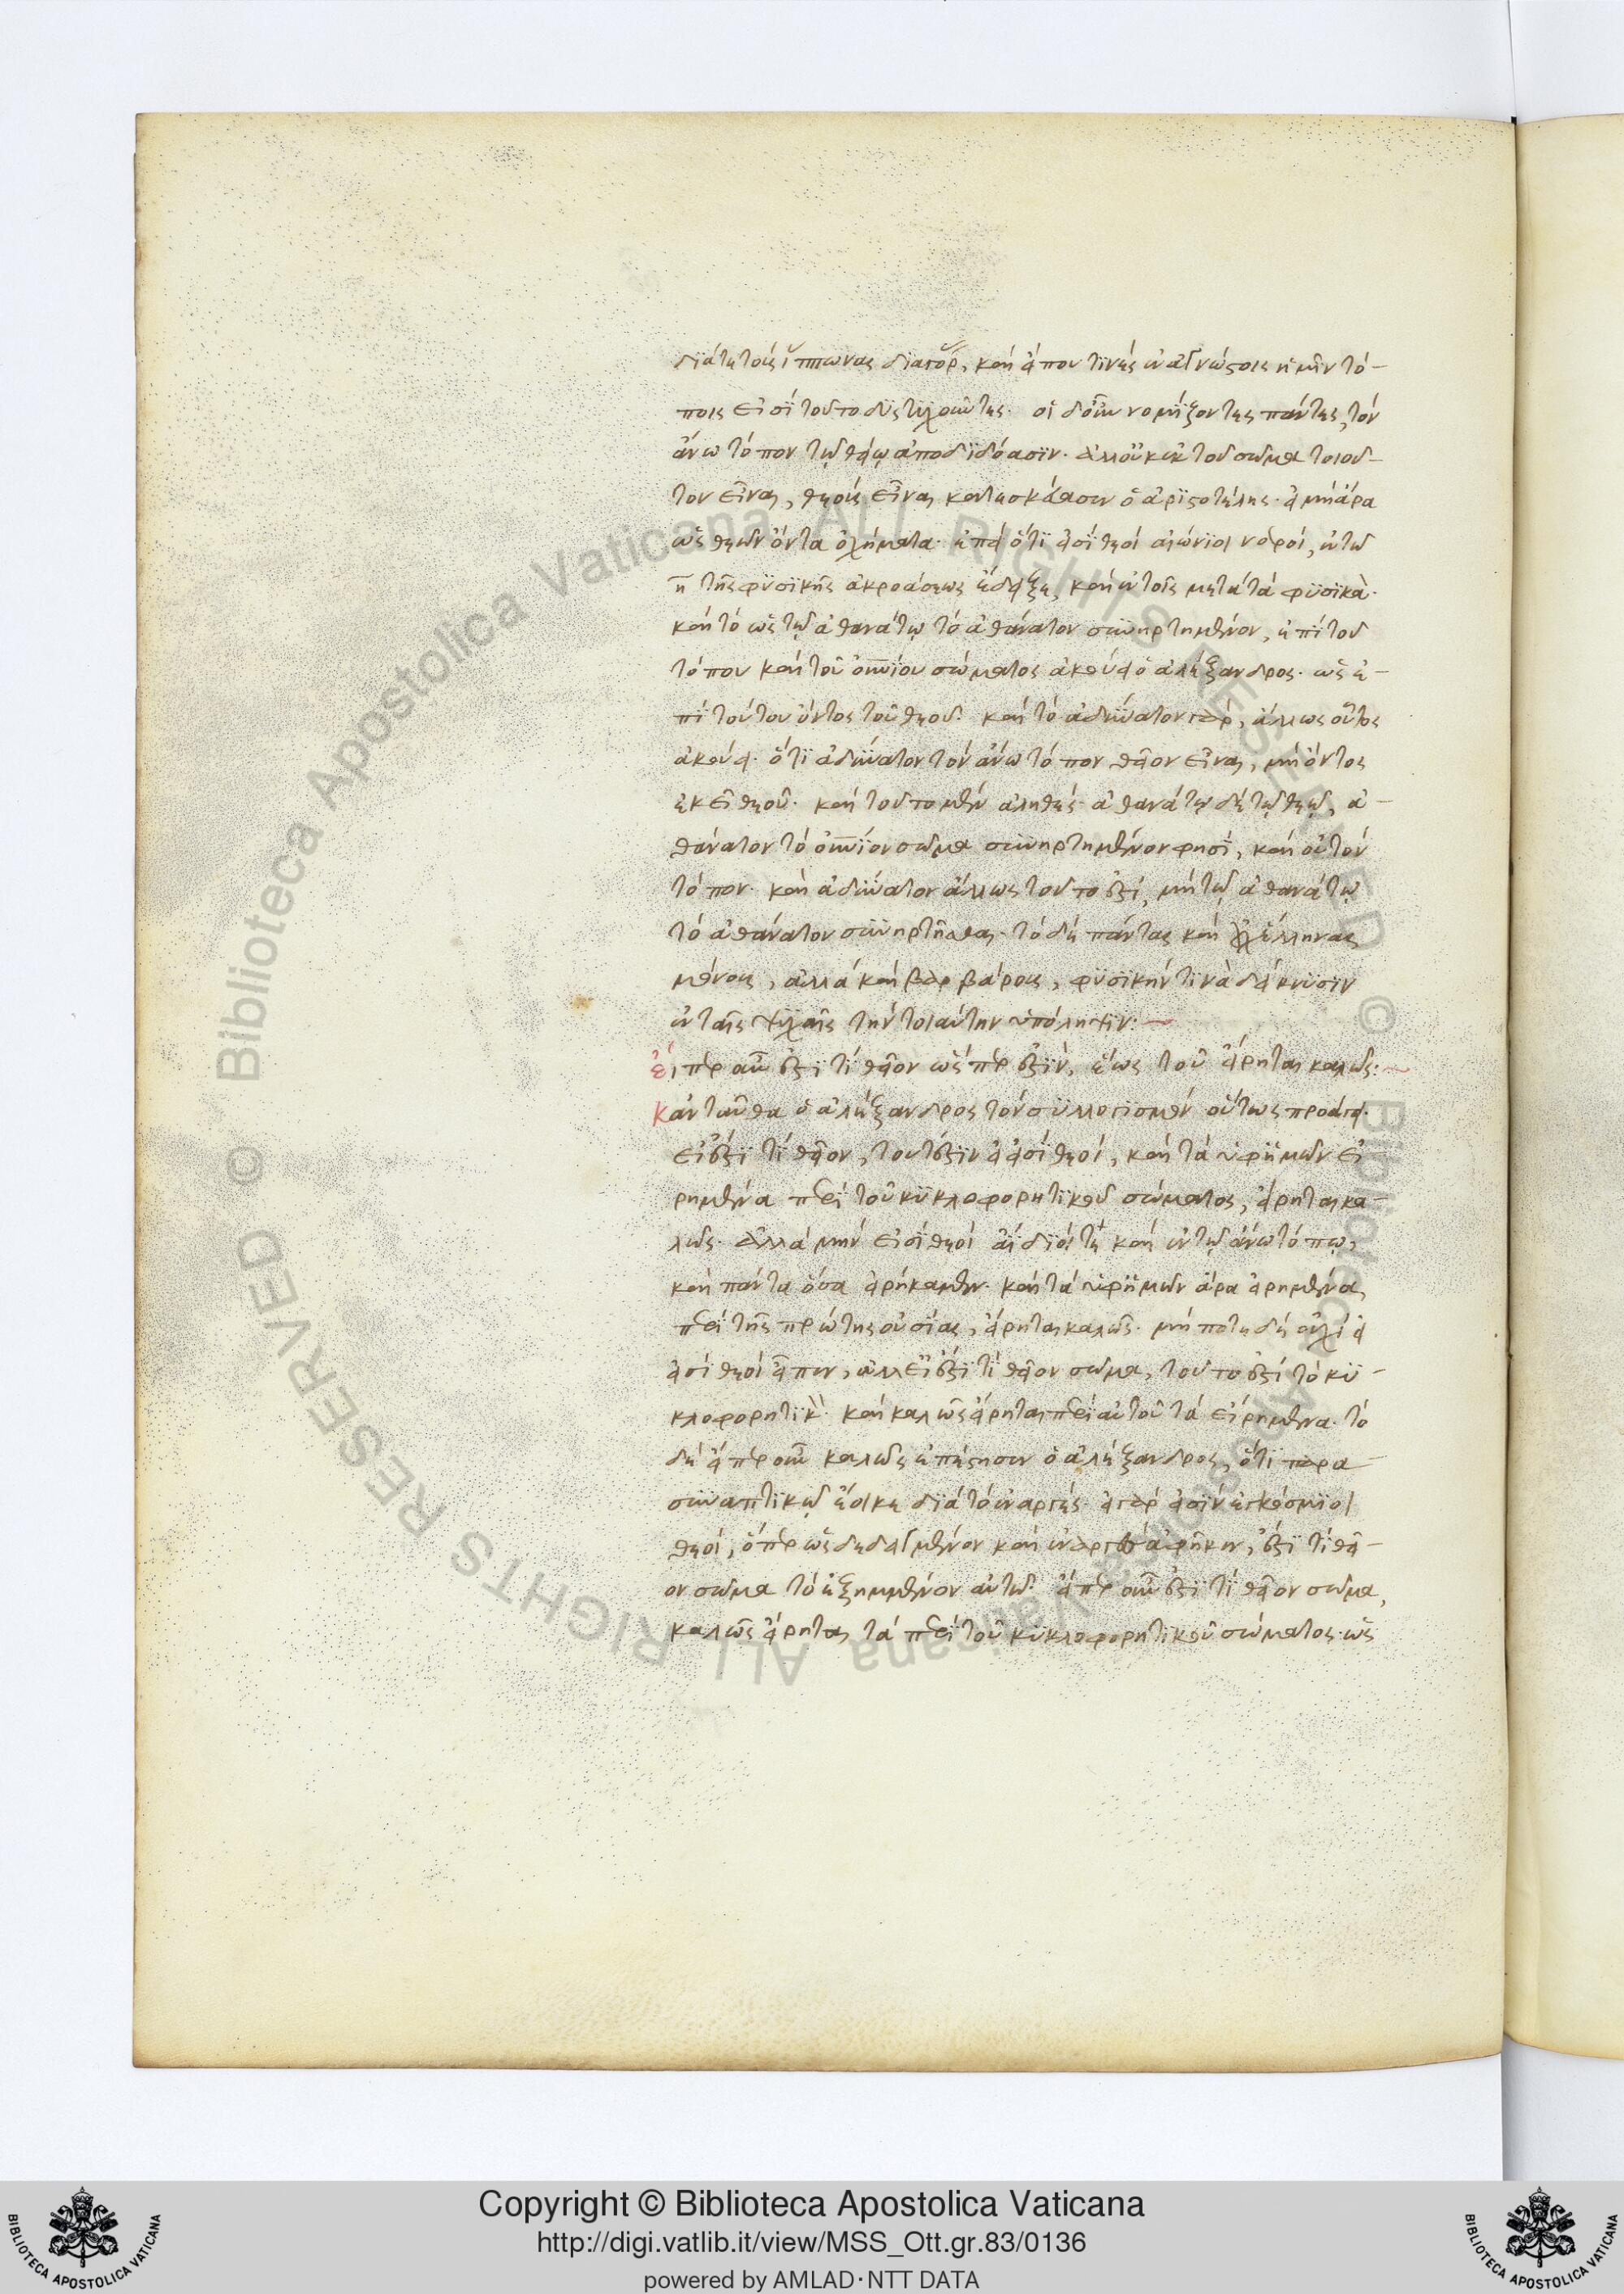 διά τε τοὺς ἵππωνας διαγόρ, καὶ εἴ που τινὲς ἐν ἀγνώστοις ἡμῖν τό-
ποις εἰσὶ τοῦτο δυστυχοῦντες. οἱ δ' οὖν νομίζοντες πάντες, τὸν
ἄνω τόπον τῷ θείῳ ἀποδιδόασιν. ἀλλ' οὐκ ἐκ τοῦ σῶμα τοιοῦ-
τον εἶναι, θεοὺς εἶναι κατεσκεύασεν ὁ ἀριστοτέλης. εἰ μὴ ἄρα
ὡς θεῶν ὄντα ὀχήματα. ἐπεὶ ὅτι εἰσὶ θεοὶ αἰώνιοι νοεροί, ἐν τῷ
η τῆς φυσικῆς ἀκροάσεως ἔδειξε, καὶ ἐν τοῖς μετὰ τὰ φυσικά.
καὶ τὸ ὡς τῷ ἀθανάτῳ τὸ ἀθάνατον συνηρτημένον, ἐπὶ τοῦ
τόπου καὶ τοῦ οὐνίου σώματος ἀκούει ὁ ἀλέξανδρος. ὡς ἐ-
πὶ τούτου ὄντος τοῦ θεοῦ. καὶ τὸ ἀδύνατον γὰρ, ἄλλως οὕτως
ἀκούει. ὅτι ἀδύνατον τὸν ἄνω τόπον θεῖον εἶναι, μὴ ὄντος
ἐκεῖ θεοῦ. καὶ τοῦτο μὲν ἀληθές. ἀθανάτῳ δὲ τῷ θεῷ, ἀ-
θάνατον τὸ οὐνίον σῶμα συνηρτημένον φησί, καὶ οὐ τὸν
τόπον. καὶ ἀδύνατον ἄλλως τοῦτο ἐστί, μὴ τῷ ἀθανάτῳ
τὸ ἀθάνατον συνηρτῆσθαι. τὸ δὲ πάντας καὶ οὐχ ἕλληνας
μόνους, ἀλλὰ καὶ βαρβάρους, φυσικήν τινα δείκνυσιν
ἐν ταῖς ψυχαῖς τὴν τοιαύτην ὑπόληψιν:
εἴπερ οὖν ἐστί τι θεῖον ὥσπερ ἐστίν, ἕως τοῦ εἴρηται καλῶς:
Κἀνταῦθα ὁ ἀλέξανδρος τὸν συλλογισμὸν οὕτως προάγει.
εἰ ἐστί τι θεῖον, τουτέστιν εἰ εἰσὶ θεοί, καὶ τὰ ὑφ' ἡμῶν εἰ
ρημένα περὶ τοῦ κυκλοφορητικοῦ σώματος, εἴρηται κα-
λῶς. ἀλλὰ μὴν εἰσὶ θεοὶ ἀΐδιοί τε καὶ ἐν τῷ ἄνω τόπῳ,
καὶ πάντα ὅσα εἰρήκαμεν. καὶ τὰ ὑφ' ἡμῶν ἄρα εἰρημένα,
περὶ τῆς πρώτης οὐσίας, εἴρηται καλῶς. μή ποτε δὲ οὐχὶ εἰ
εἰσὶ θεοὶ εἶπεν, ἀλλ' εἰ ἐστί τι θεῖον σῶμα, τοῦτο ἐστὶ τὸ κυ-
κλοφορητικ. καὶ καλῶς εἴρηται περὶ αὐτοῦ τὰ εἰρημένα. τὸ
δὲ εἴπερ οὖν καλῶς ἐπέστησεν ὁ ἀλέξανδρος, ὅτι παρα-
συναπτικῷ ἔοικε διὰ τὸ ἐναργές. εἰ γὰρ εἰσὶν ἐγκόσμιοι
θεοί, ὅπερ ὡς δεδειγμένον καὶ ἐναργὲς ἀφῆκεν, ἐστί τι θεῖ-
ον σῶμα τὸ ἐξημμένον αὐτῶν. εἴπερ οὖν ἐστί τι θεῖον σῶμα,
καλῶς εἴρηται τὰ περὶ τοῦ κυκλοφορητικοῦ σώματος. ὡς
Copyright © Biblioteca Apostolica Vaticana
http://digi.vatlib.it/view/MSS_Ott.gr.83/0136
powered by AMLAD·NTT DATA
BIBLIOTECA APOSTOLICA VATICANA
BIBLIOTECA APOSTOLICA VATICANA